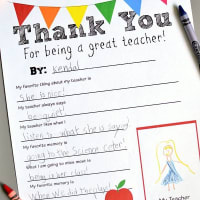 Thank You
For being a great teacher!
BY: Kendal
My favorite thing about my teacher is
She is nice!
My teacher always says
be quiet!
My teacher
when I
listen to what she is saying!
My favorite memory is
going to the Science Center!
What I am going to miss most is
being in her class!
My favorite memory is
When we did the
My Teacher